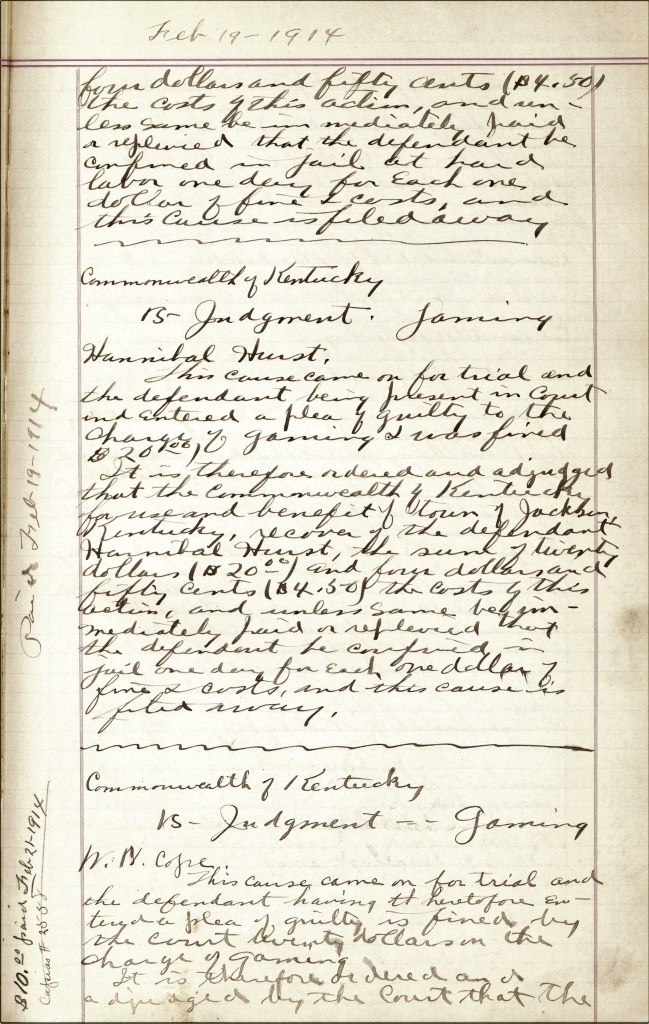 Feb 19-1914
four dollars and fifty cents ($4.50)
the costs of this action, and un-
less same be immediately paid
or replevied that the defendant be
confined in jail at hard
labor one day for Each one
dollar of fine & costs, and
this cause is filed away
Commonwealth of Kentucky
vs- Judgment. Gaming
Hannibal Hurst.
This cause came on for trial and
the defendant being present in Court
and Entered a plea of guilty to the
charge of gaming & was fined
$20.00,
It is therefore ordered and adjudged
that the Commonwealth of Kentucky
for use and benefit of town of Jackson,
Kentucky, recover of the defendant
Hannibal Hurst, the sum of twenty
dollars ($20.00) and four dollars and
fifty cents ($4.50) the costs of this
action, and unless same be im-
mediately paid or replevied that
the defendant be confined in
jail one day for each one dollar of
fine & costs, and this cause is
filed away.
Paid Feb 19-1914
Commonwealth of Kentucky
vs- Judgment -- Gaming
W. N. Cope.
This cause came on for trial and
the defendant having heretofore en-
tered a plea of guilty is fined by
the court twenty dollars on the
charge of Gaming
It is therefore ordered and
adjudged by the Court that the
$10.00 paid Feb-21-1914
Capias #